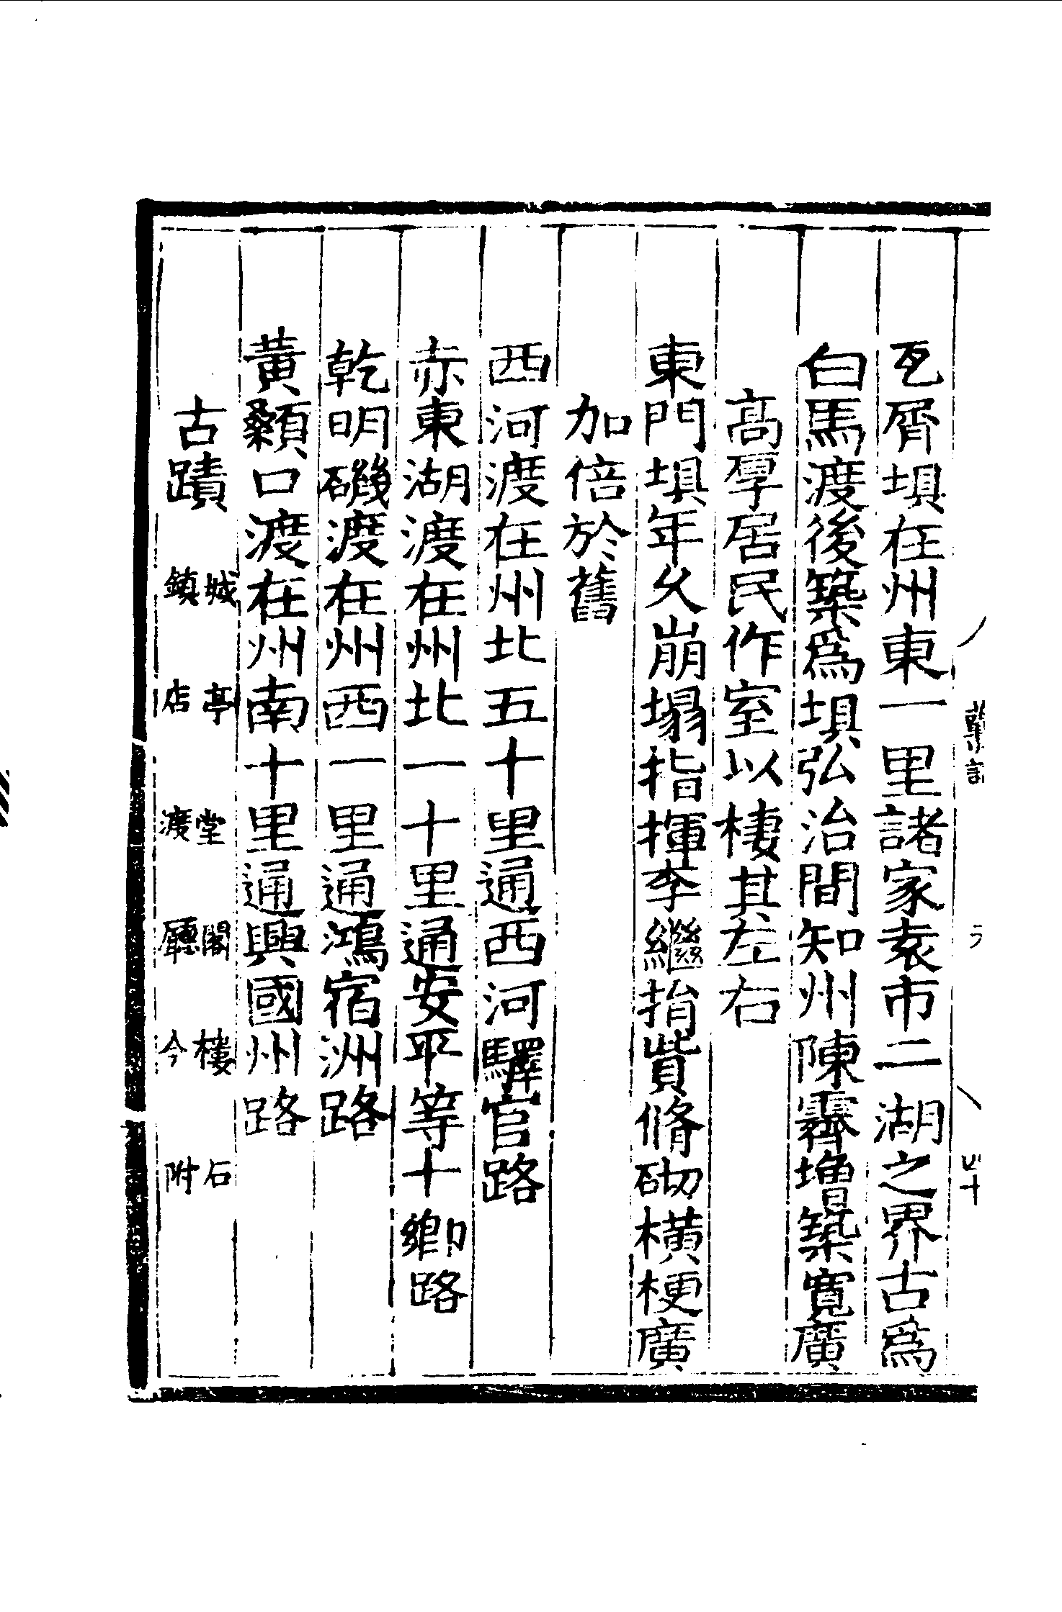 瓦屑垻在州東一里諸家袁市二湖之界古為
白馬渡後築為垻弘治間知州陳霽增築寬廣
高厚居民作室以棲其左右
東門垻年久崩塌指揮李繼捐貲脩砌橫梗廣
加倍於舊
西河渡在州北五十里通西河驛官路
赤東湖渡在州北一十里通安平等十鄉路
乾明磯渡在州西一里通鴻宿洲路
黃顙口渡在州南十里通興國州路
古蹟 城 亭 堂 閣 樓 石
鎮 店 渡 廳 今 附